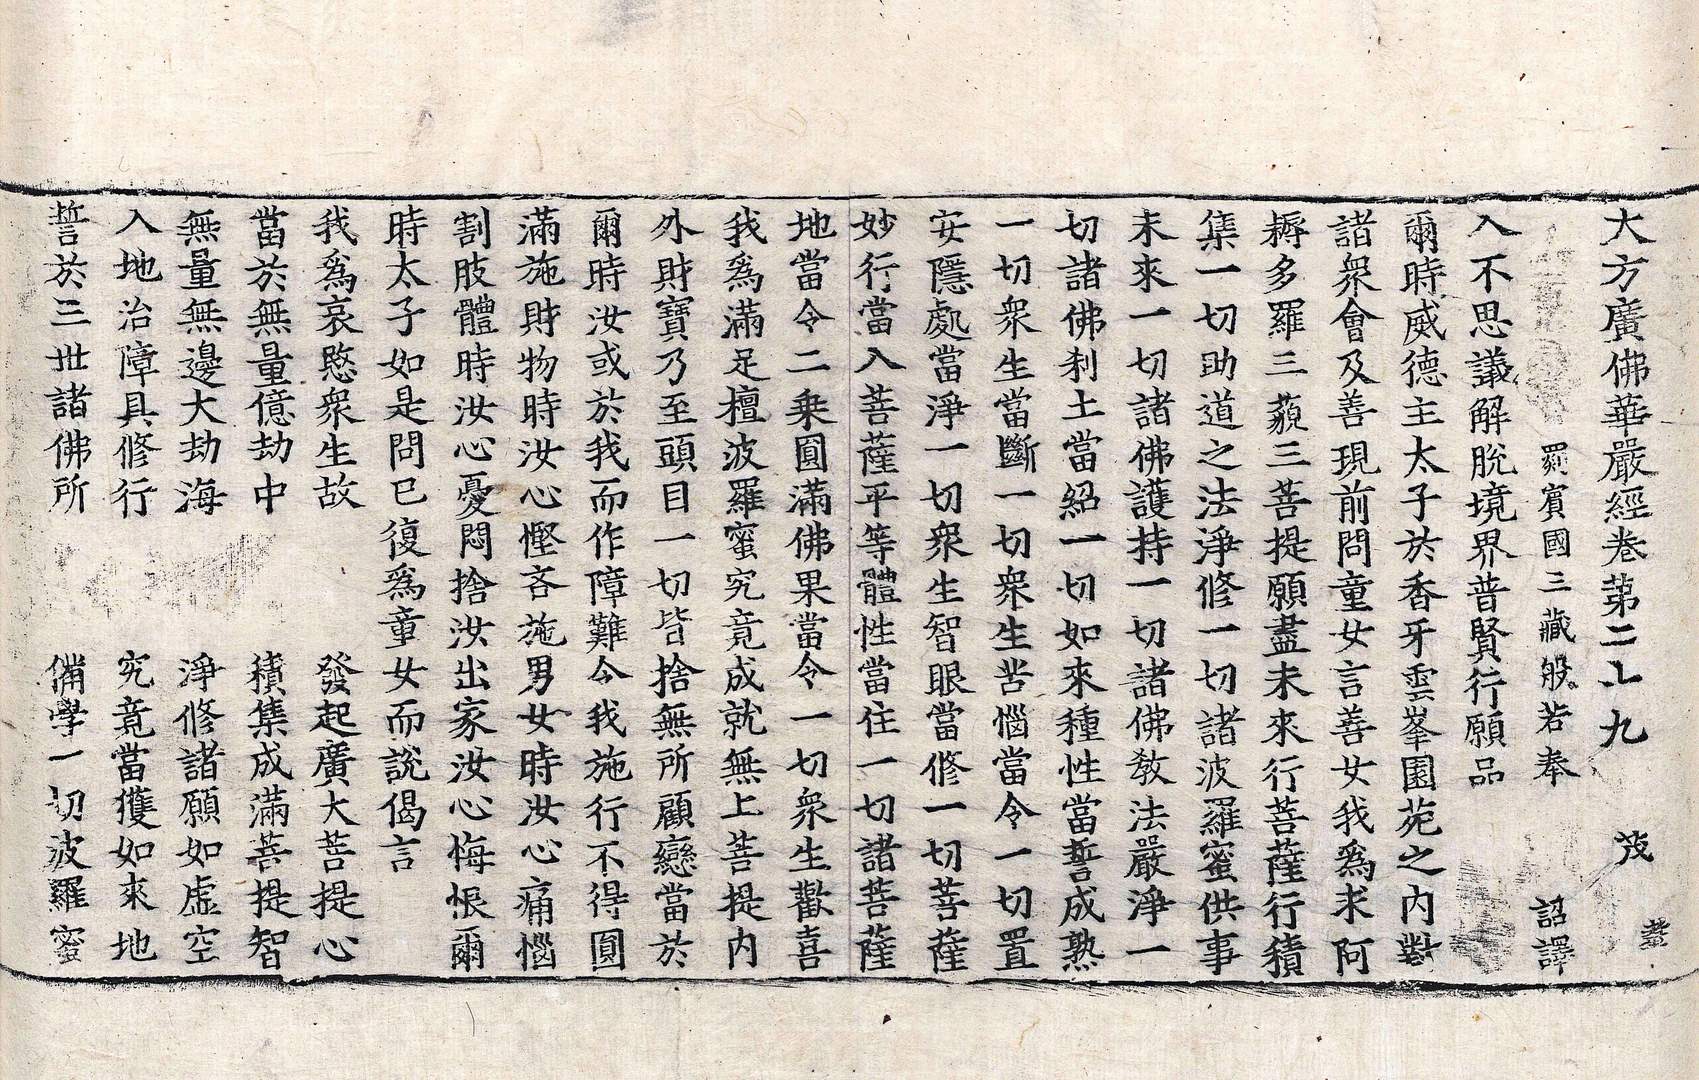 大方廣佛華嚴經卷第二十九 茂
罽賓國三藏般若奉 詔譯
入不思議解脫境界普賢行願品
爾時威德主太子於香牙雲峯園苑之內對
諸衆會及善現前問童女言善女我爲求阿
耨多羅三藐三菩提願盡未來行菩薩行積
集一切助道之法淨修一切諸波羅蜜供事
未來一切諸佛護持一切諸佛教法嚴淨一
切諸佛刹土當紹一切如來種性當誓成熟
一切衆生當斷一切衆生苦惱當令一切置
安隱處當淨一切衆生智眼當修一切菩薩
妙行當入菩薩平等體性當住一切諸菩薩
地當令二乗圓滿佛果當令一切衆生歡喜
我爲滿足檀波羅蜜究竟成就無上菩提內
外財寶乃至頭目一切皆捨無所顧戀當於
爾時汝或於我而作障難令我施行不得圓
滿施財物時汝心慳吝施男女時汝心痛惱
割肢體時汝心憂悶捨汝出家汝心悔悵爾
時太子如是問已復爲童女而說偈言
我爲哀愍衆生故 發起廣大菩提心
當於無量億劫中 積集成滿菩提智
無量無邊大劫海 淨修諸願如虛空
入地治障具修行 究竟當獲如來地
誓於三世諸佛所 備學一切波羅蜜